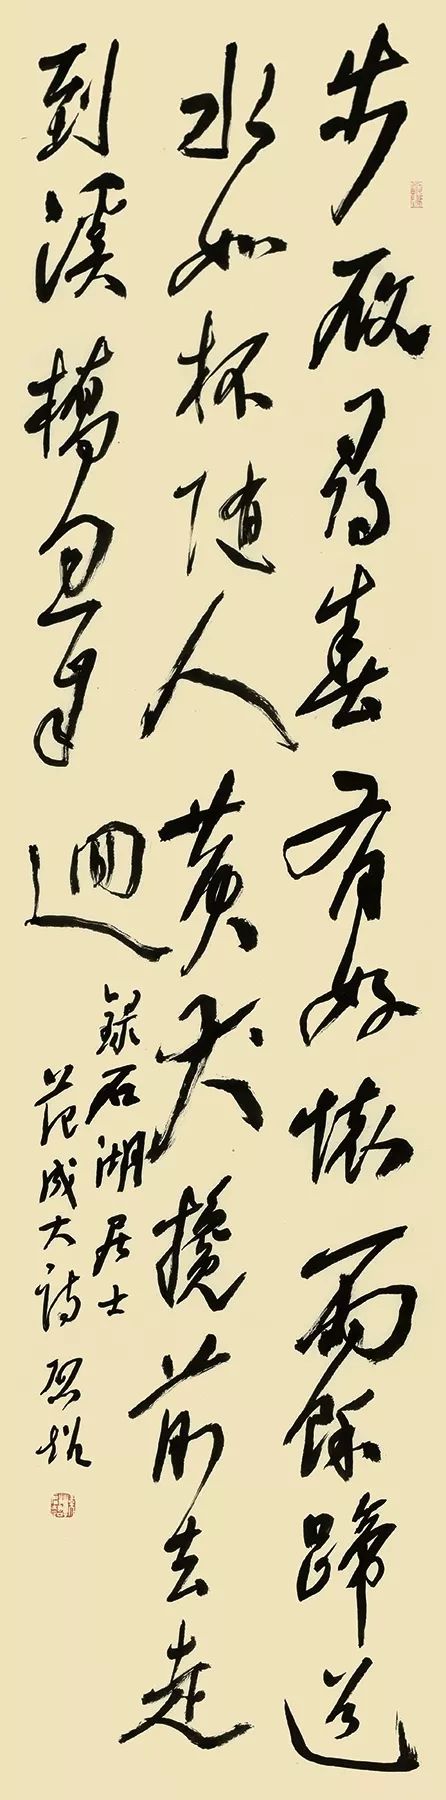 步屧尋春有好懷雨餘蹄道
水如杯随人黄犬攙前去走
到溪橋忽自迴
録石湖居士
范成大詩